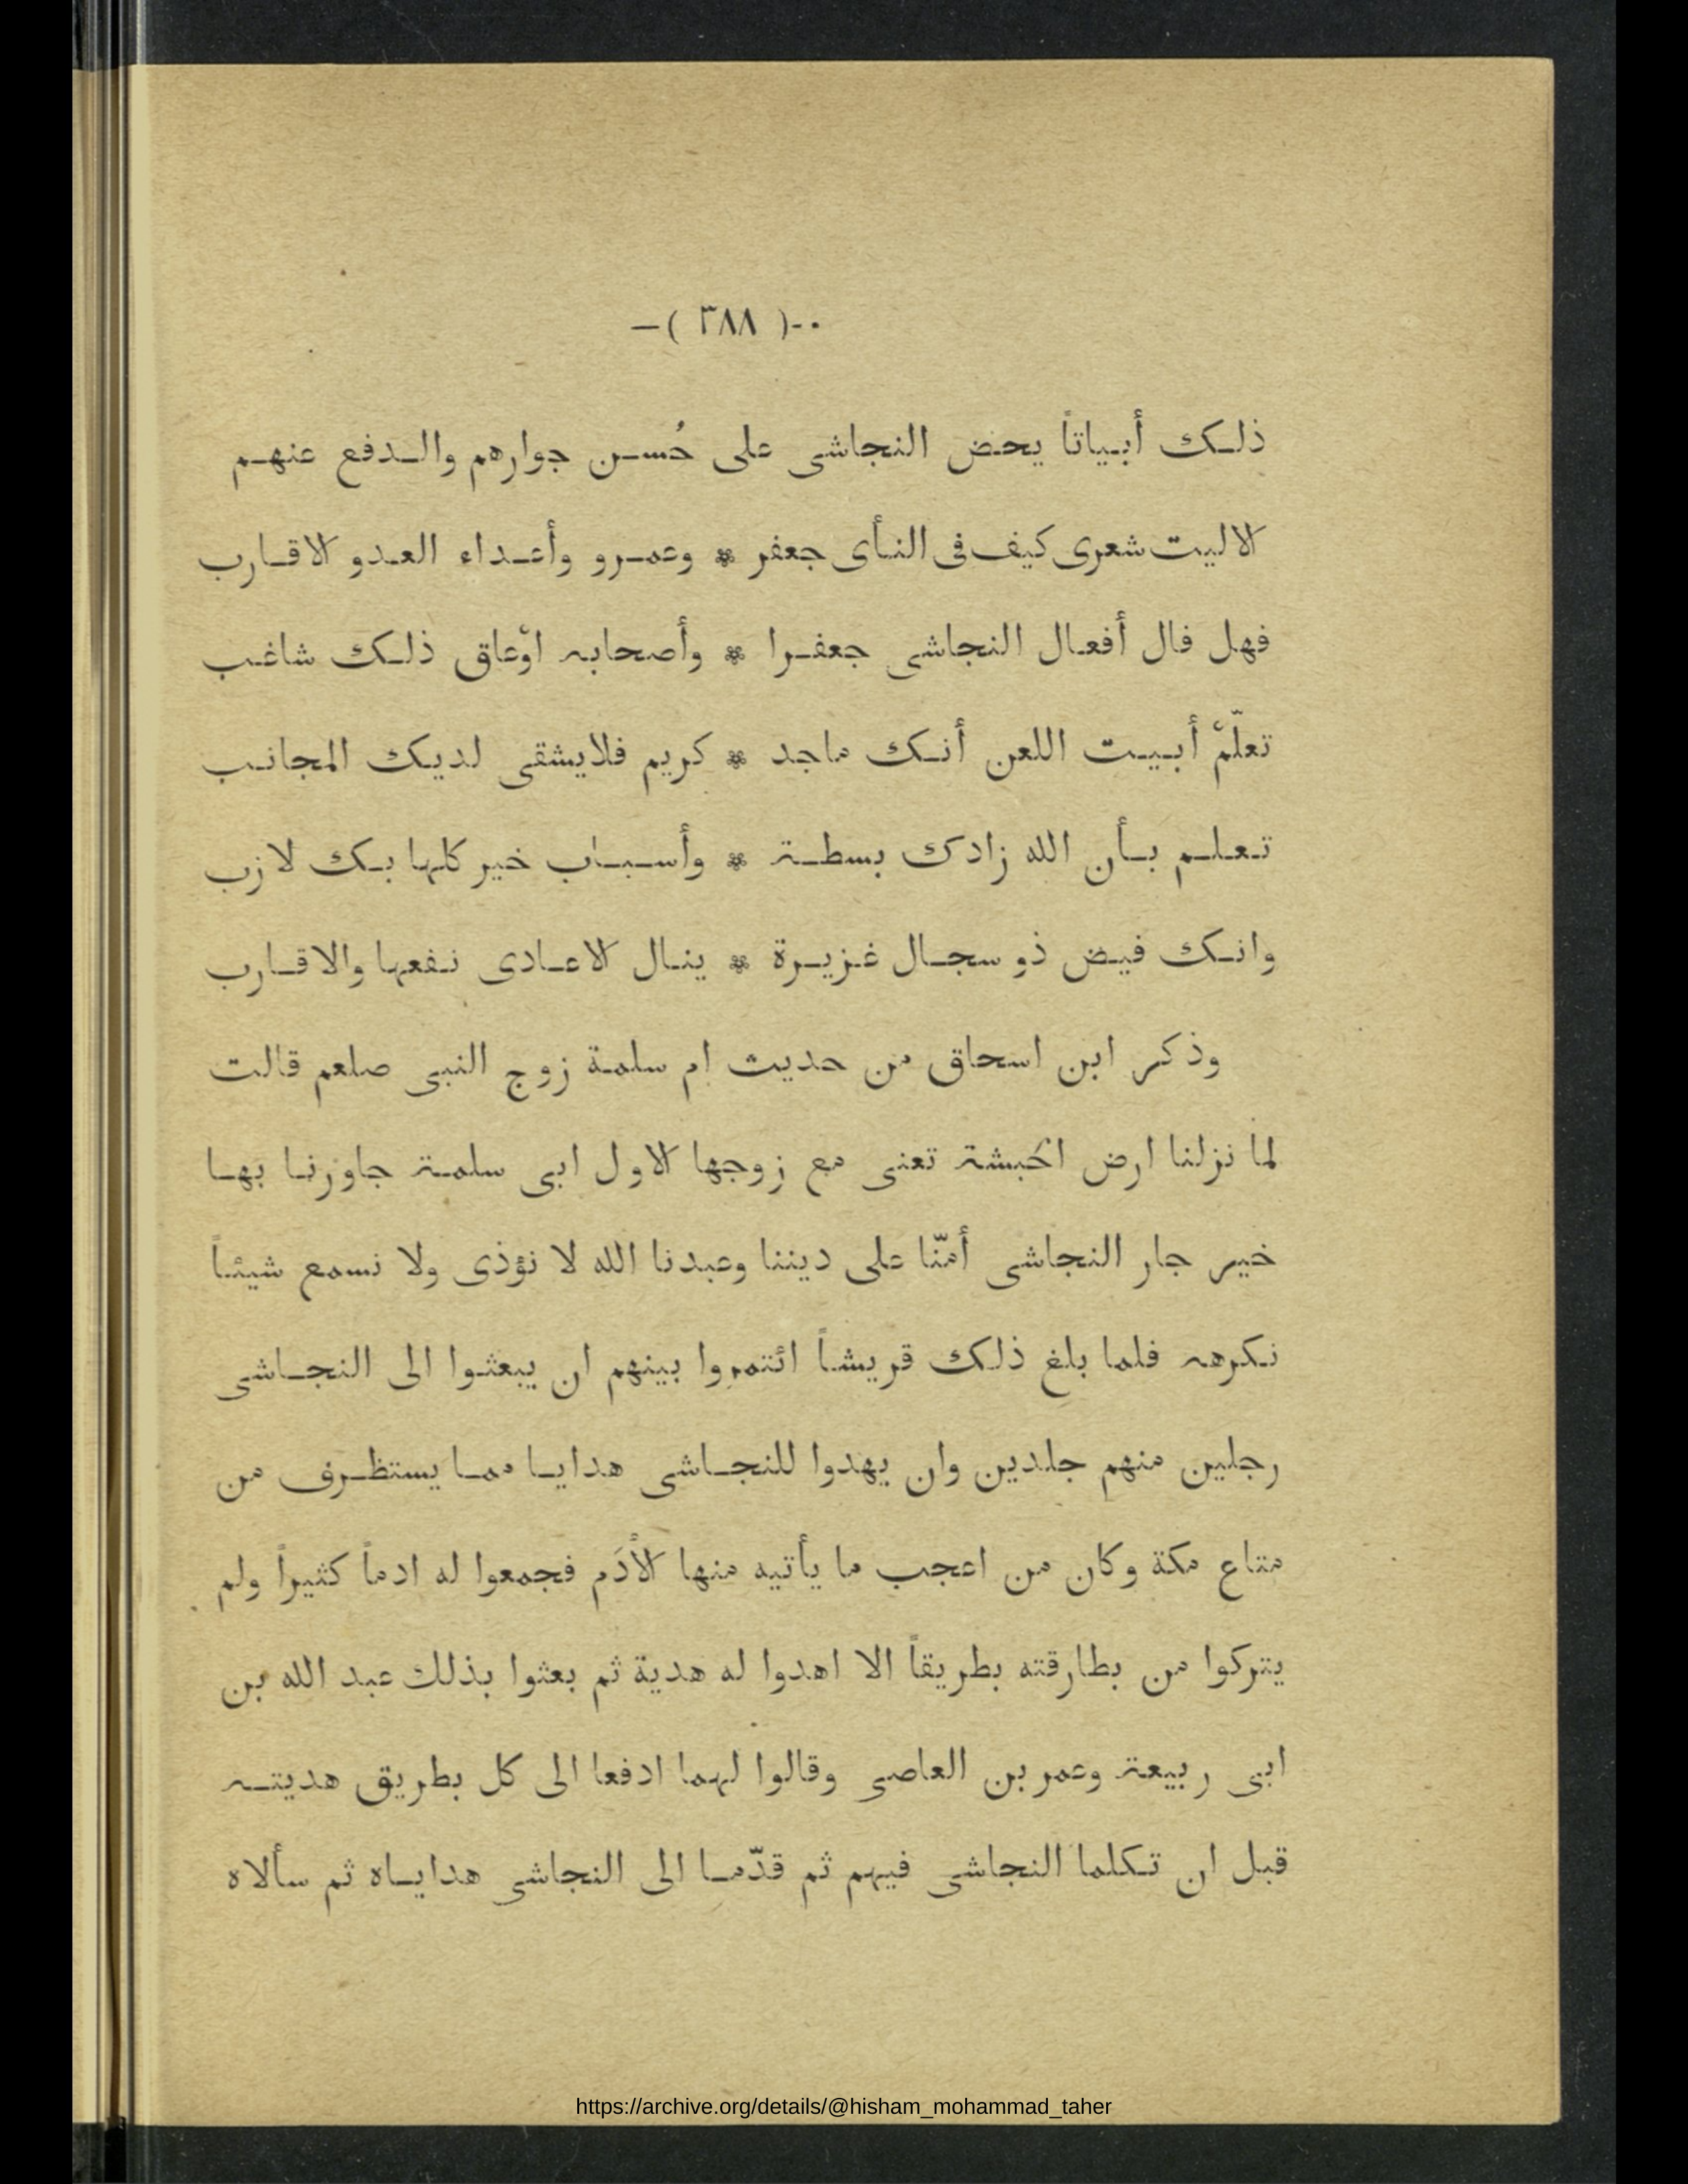 -( ٣٨٨ )-
ذلك أبياتاً يحض النجاشى على حُسن جوارهم والدفع عنهم
الا ليت شعرى كيف فى النأى جعفر * وعمرو وأعداء العدو الاقارب
فهل فال أفعال النجاشى جعفرا * وأصحابه اوْعاق ذلك شاغب
تعلّمْ أبيت اللعن أنك ماجد * كريم فلا يشقى لديك المجانب
تعلم بأن الله زادك بسطة * وأسباب خير كلها بك لازب
وانك فيض ذو سجال غزيرة * ينال الاعادى نفعها والاقارب
وذكر ابن اسحاق من حديث ام سلمة زوج النبى صلعم قالت
لما نزلنا ارض الحَبشة تعنى مع زوجها الاول ابى سلمة جاورنا بها
خير جار النجاشى أمنّا على ديننا وعبدنا الله لا نؤذى ولا نسمع شيئاً
نكرهه فلما بلغ ذلك قريشاً ائتمروا بينهم ان يبعثوا الى النجاشى
رجلين منهم جلدين وان يهدوا للنجاشى هدايا مما يستظرف من
متاع مكة وكان من اعجب ما يأتيه منها الأدَم فجمعوا له ادماً كثيراً ولم
يتركوا من بطارقته بطريقاً الا اهدوا له هدية ثم بعثوا بذلك عبد الله بن
ابى ربيعة وعمر بن العاصى وقالوا لهما ادفعا الى كل بطريق هديته
قبل ان تكلما النجاشى فيهم ثم قدّما الى النجاشى هداياه ثم سألاه
https://archive.org/details/@hisham_mohammad_taher